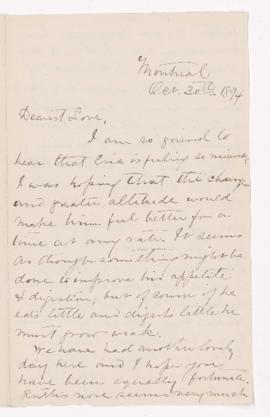 Montreal
Oct. 30th 1894
Dearest Love,
I am so grieved to
hear that Eric is feeling so
I was hoping that the change
and greater altitude would
make him feel better for a
time at any rate. It seems
as though something might be
done to improve his appetite
& digestion, but of course if he
eats little and digests little he
must grow weak.
We have had another lovely
day here and I hope you
have been equally fortunate.
this now seems very much